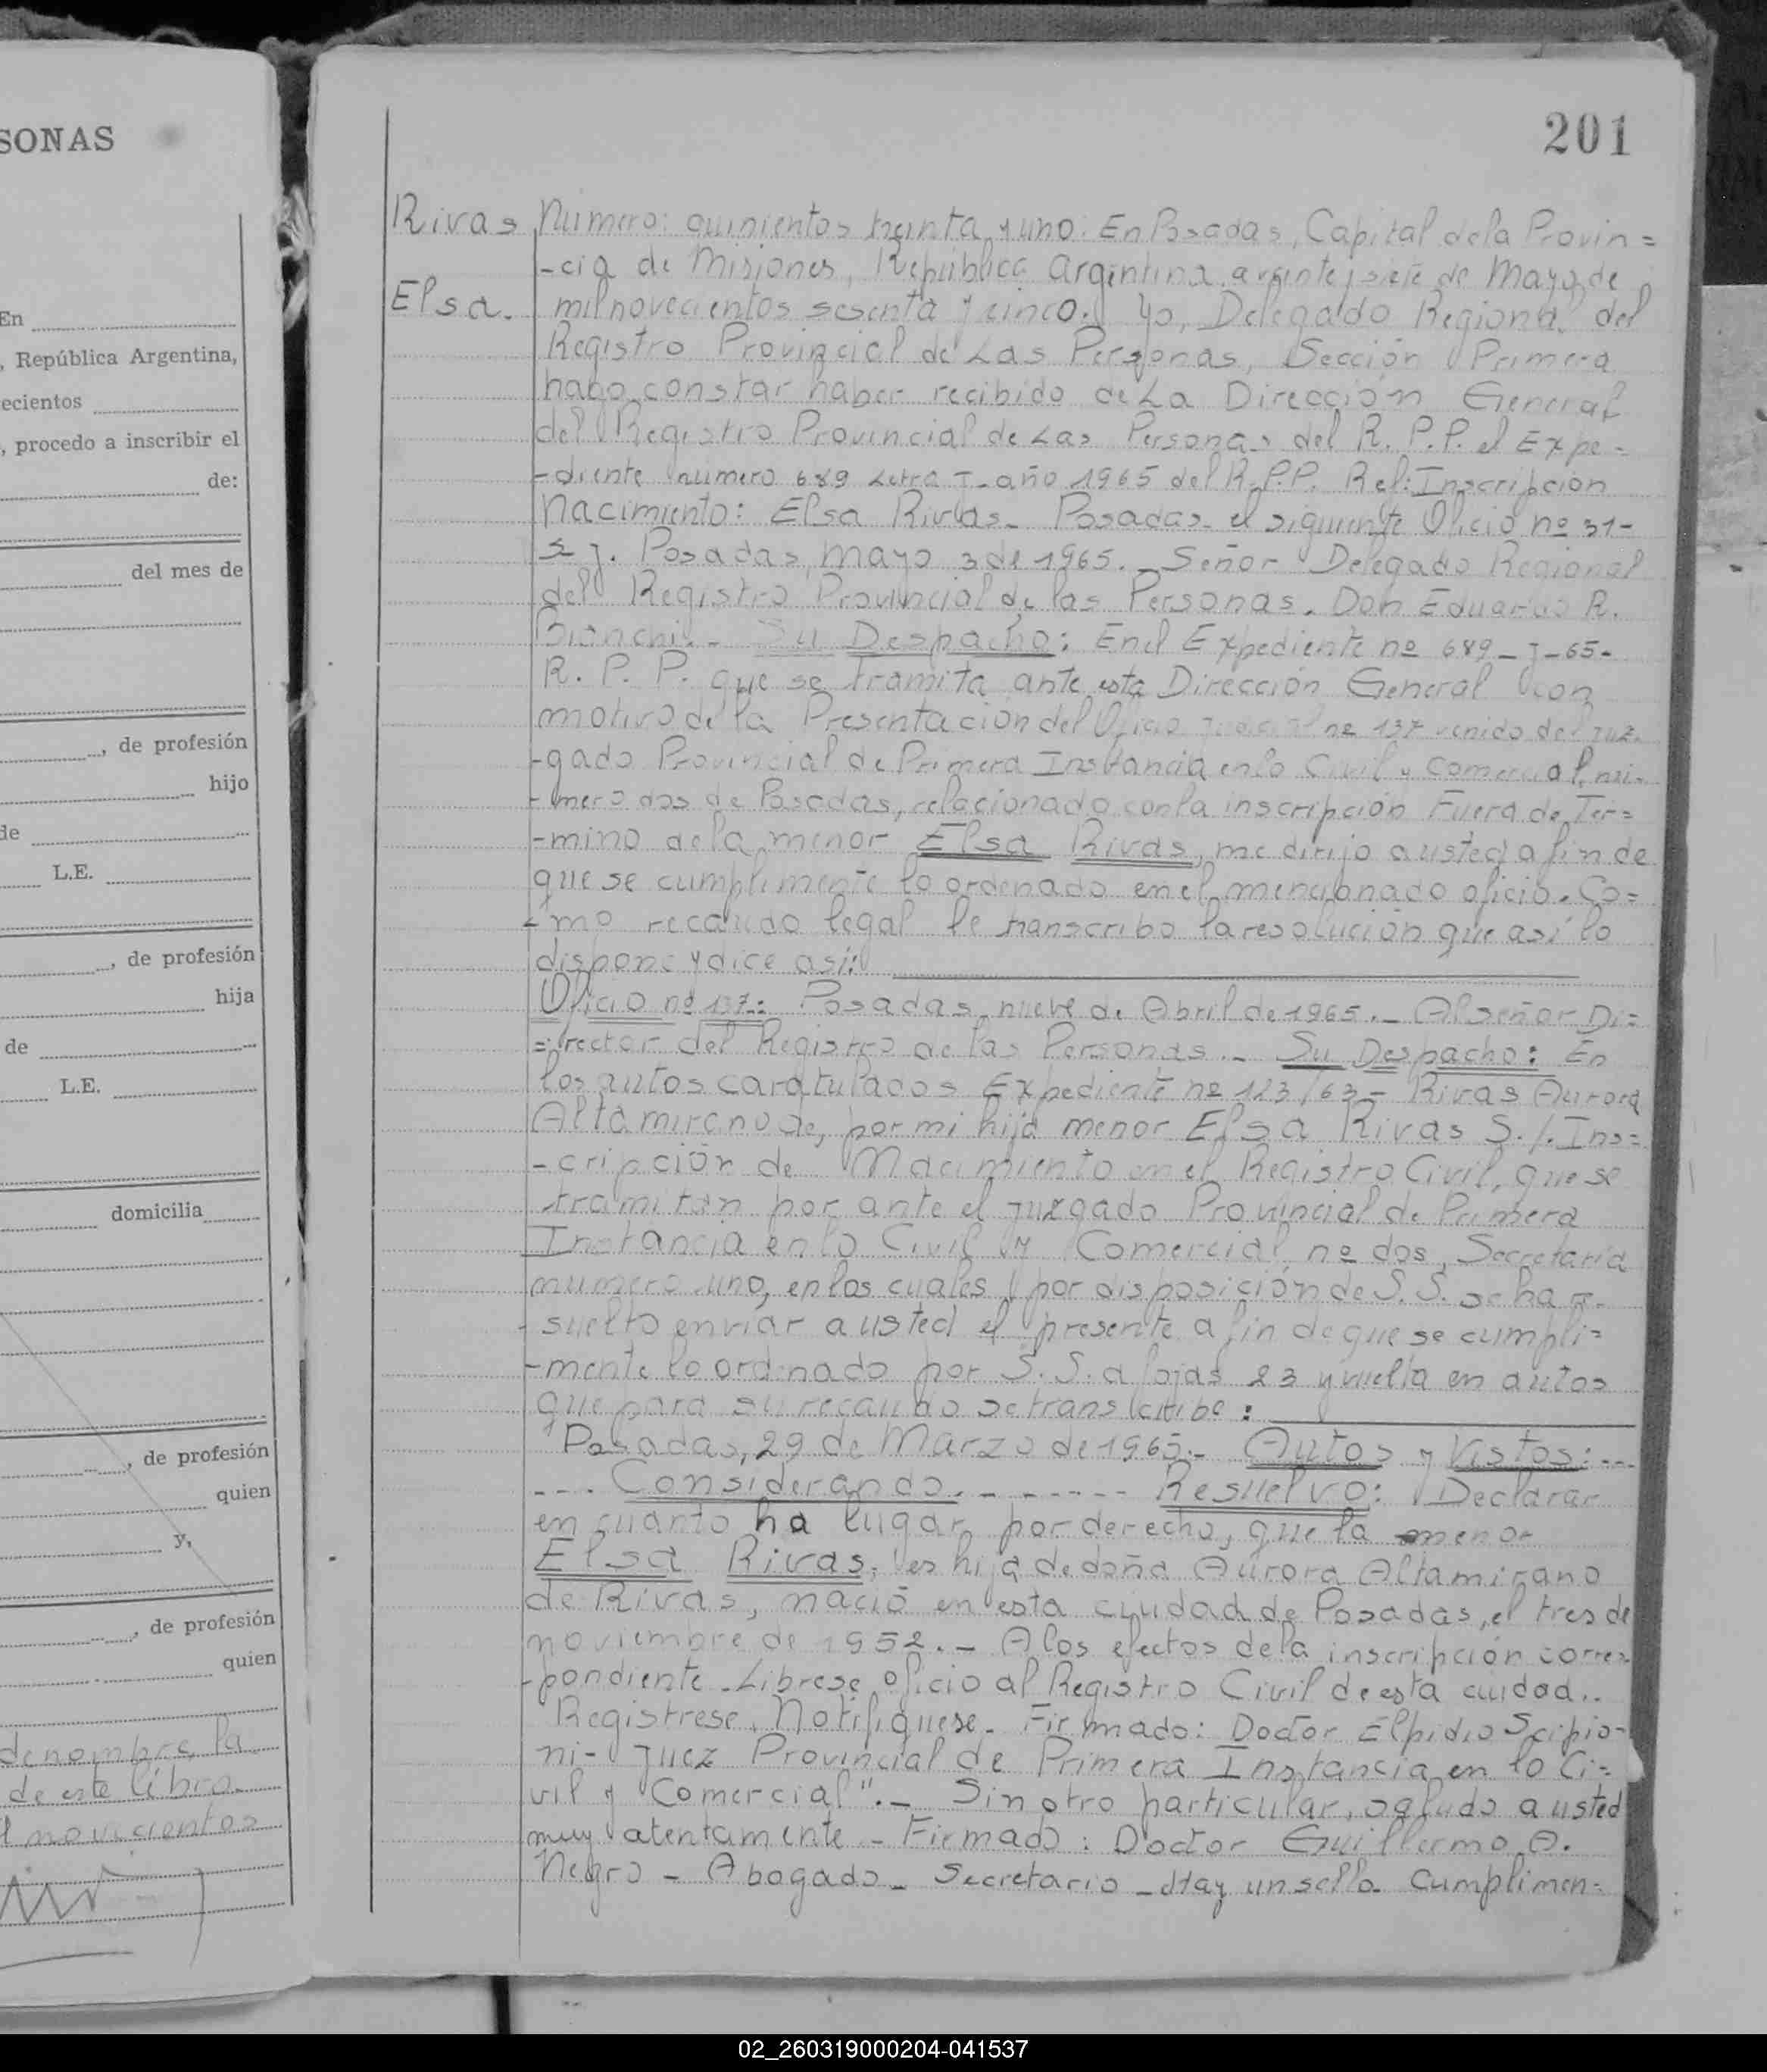 SONAS
En
, República Argentina,
ecientos
, procedo a inscribir el
de:
del mes de
, de profesión
hijo
de
L.E.
, de profesión
hija
de
L.E.
domicilia
, de profesión
quien
y,
, de profesión
quien
de nombre la
de este libro.
l novecientos
201
Rivas
Elsa.
Número: quinientos treinta y uno: En Posadas, Capital de la Provin=
-cia de Misiones, República Argentina, a veinte y siete de Mayo, de
mil novecientos sesenta y cinco. Yo, Delegado Regional del
Registro Provincial de Las Personas, Sección Primera
hago constar haber recibido de La Dirección General
del Registro Provincial de Las Personas del R. P.P. el Expe-
-diente número 689 Letra J- año 1965 del R.P.P. Ref: Inscripción
Nacimiento: Elsa Rivas- Posadas- el siguiente Oficio nº 31-
Posadas, Mayo 3 de 1965.- Señor Delegado Regional
del Registro Provincial de las Personas. Don Eduardo R.
Bianchi.- Su Despacho: En el Expediente nº 689-J-65-
R. P. P. que se tramita ante esta Dirección General con
motivo de la Presentación del Oficio Judicial nº 137 venido del Juz-
-gado Provincial de Primera Instancia en lo Civil y Comercial, nú-
-mero dos de Posadas, relacionado con la inscripción Fuera de Tér=
-mino de la menor Elsa Rivas, me dirijo a usted a fin de
que se cumplimente lo ordenado en el mencionado oficio. Co=
-mo recaudo legal le transcribo la resolución que así lo
dispone y dice así:
Oficio nº 137: Posadas, nueve de Abril de 1965.- Al señor Di=
=rector del Registro de las Personas.- Su Despacho: En
los autos caratulados Expediente nº 123/63- Rivas Aurora
Altamirano de, por mi hija menor Elsa Rivas S./. Ins=
-cripción de Nacimiento en el Registro Civil, que se
tramitan por ante el Juzgado Provincial de Primera
Instancia en lo Civil y Comercial nº dos, Secretaría
número uno, en los cuales por disposición de S. S. se ha re-
-suelto enviar a usted el presente a fin de que se cumpli=
-mente lo ordenado por S. S. a fojas 23 y vuelta en autos
que para su recaudo se transcribe:
"Posadas, 29 de Marzo de 1965.- Autos y Vistos:...
.... Considerando......... Resuelvo: Declarar
en cuanto ha lugar por derecho, que la menor
Elsa Rivas, es hija de doña Aurora Altamirano
de Rivas, nació en esta ciudad de Posadas, el tres de
noviembre de 1952.- A los efectos de la inscripción corres
-pondiente. Líbrese oficio al Registro Civil de esta ciudad..
Registrese. Notifíquese. Firmado: Doctor Elpidio Scipio-
ni- Juez Provincial de Primera Instancia en lo Ci=
vil y Comercial".- Sin otro particular, saludo a usted
muy atentamente - Firmado: Doctor Guillermo A.
Negro - Abogado- Secretario - Hay un sello. Cumplimen=
02_260319000204-041537